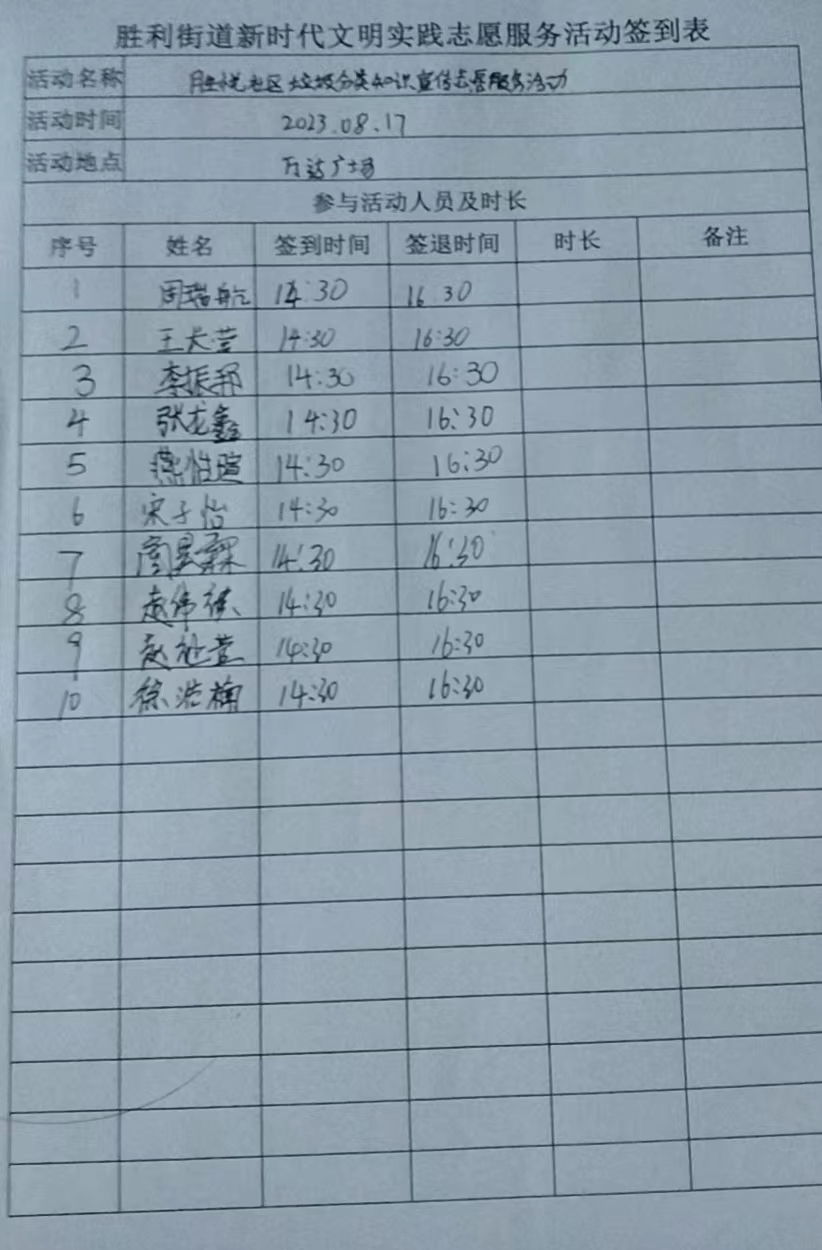 胜利街道新时代文明实践志愿服务活动签到表
活动名称 胜悦社区垃圾分类知识宣传志愿服务活动
活动时间 2023.08.17
活动地点 万达广场
参与活动人员及时长
序号 姓名 签到时间 签退时间 时长 备注
1 周瑞航 14:30 16 30
2 14:30 16:30
3 李振邦 14:30 16:30
4 张龙鑫 14:30 16:30
5 14:30 16:30
6 宋子怡 14:30 16:30
7 14:30 16:30
8 14:30 16:30
9 14:30 16:30
10 徐浩楠 14:30 16:30